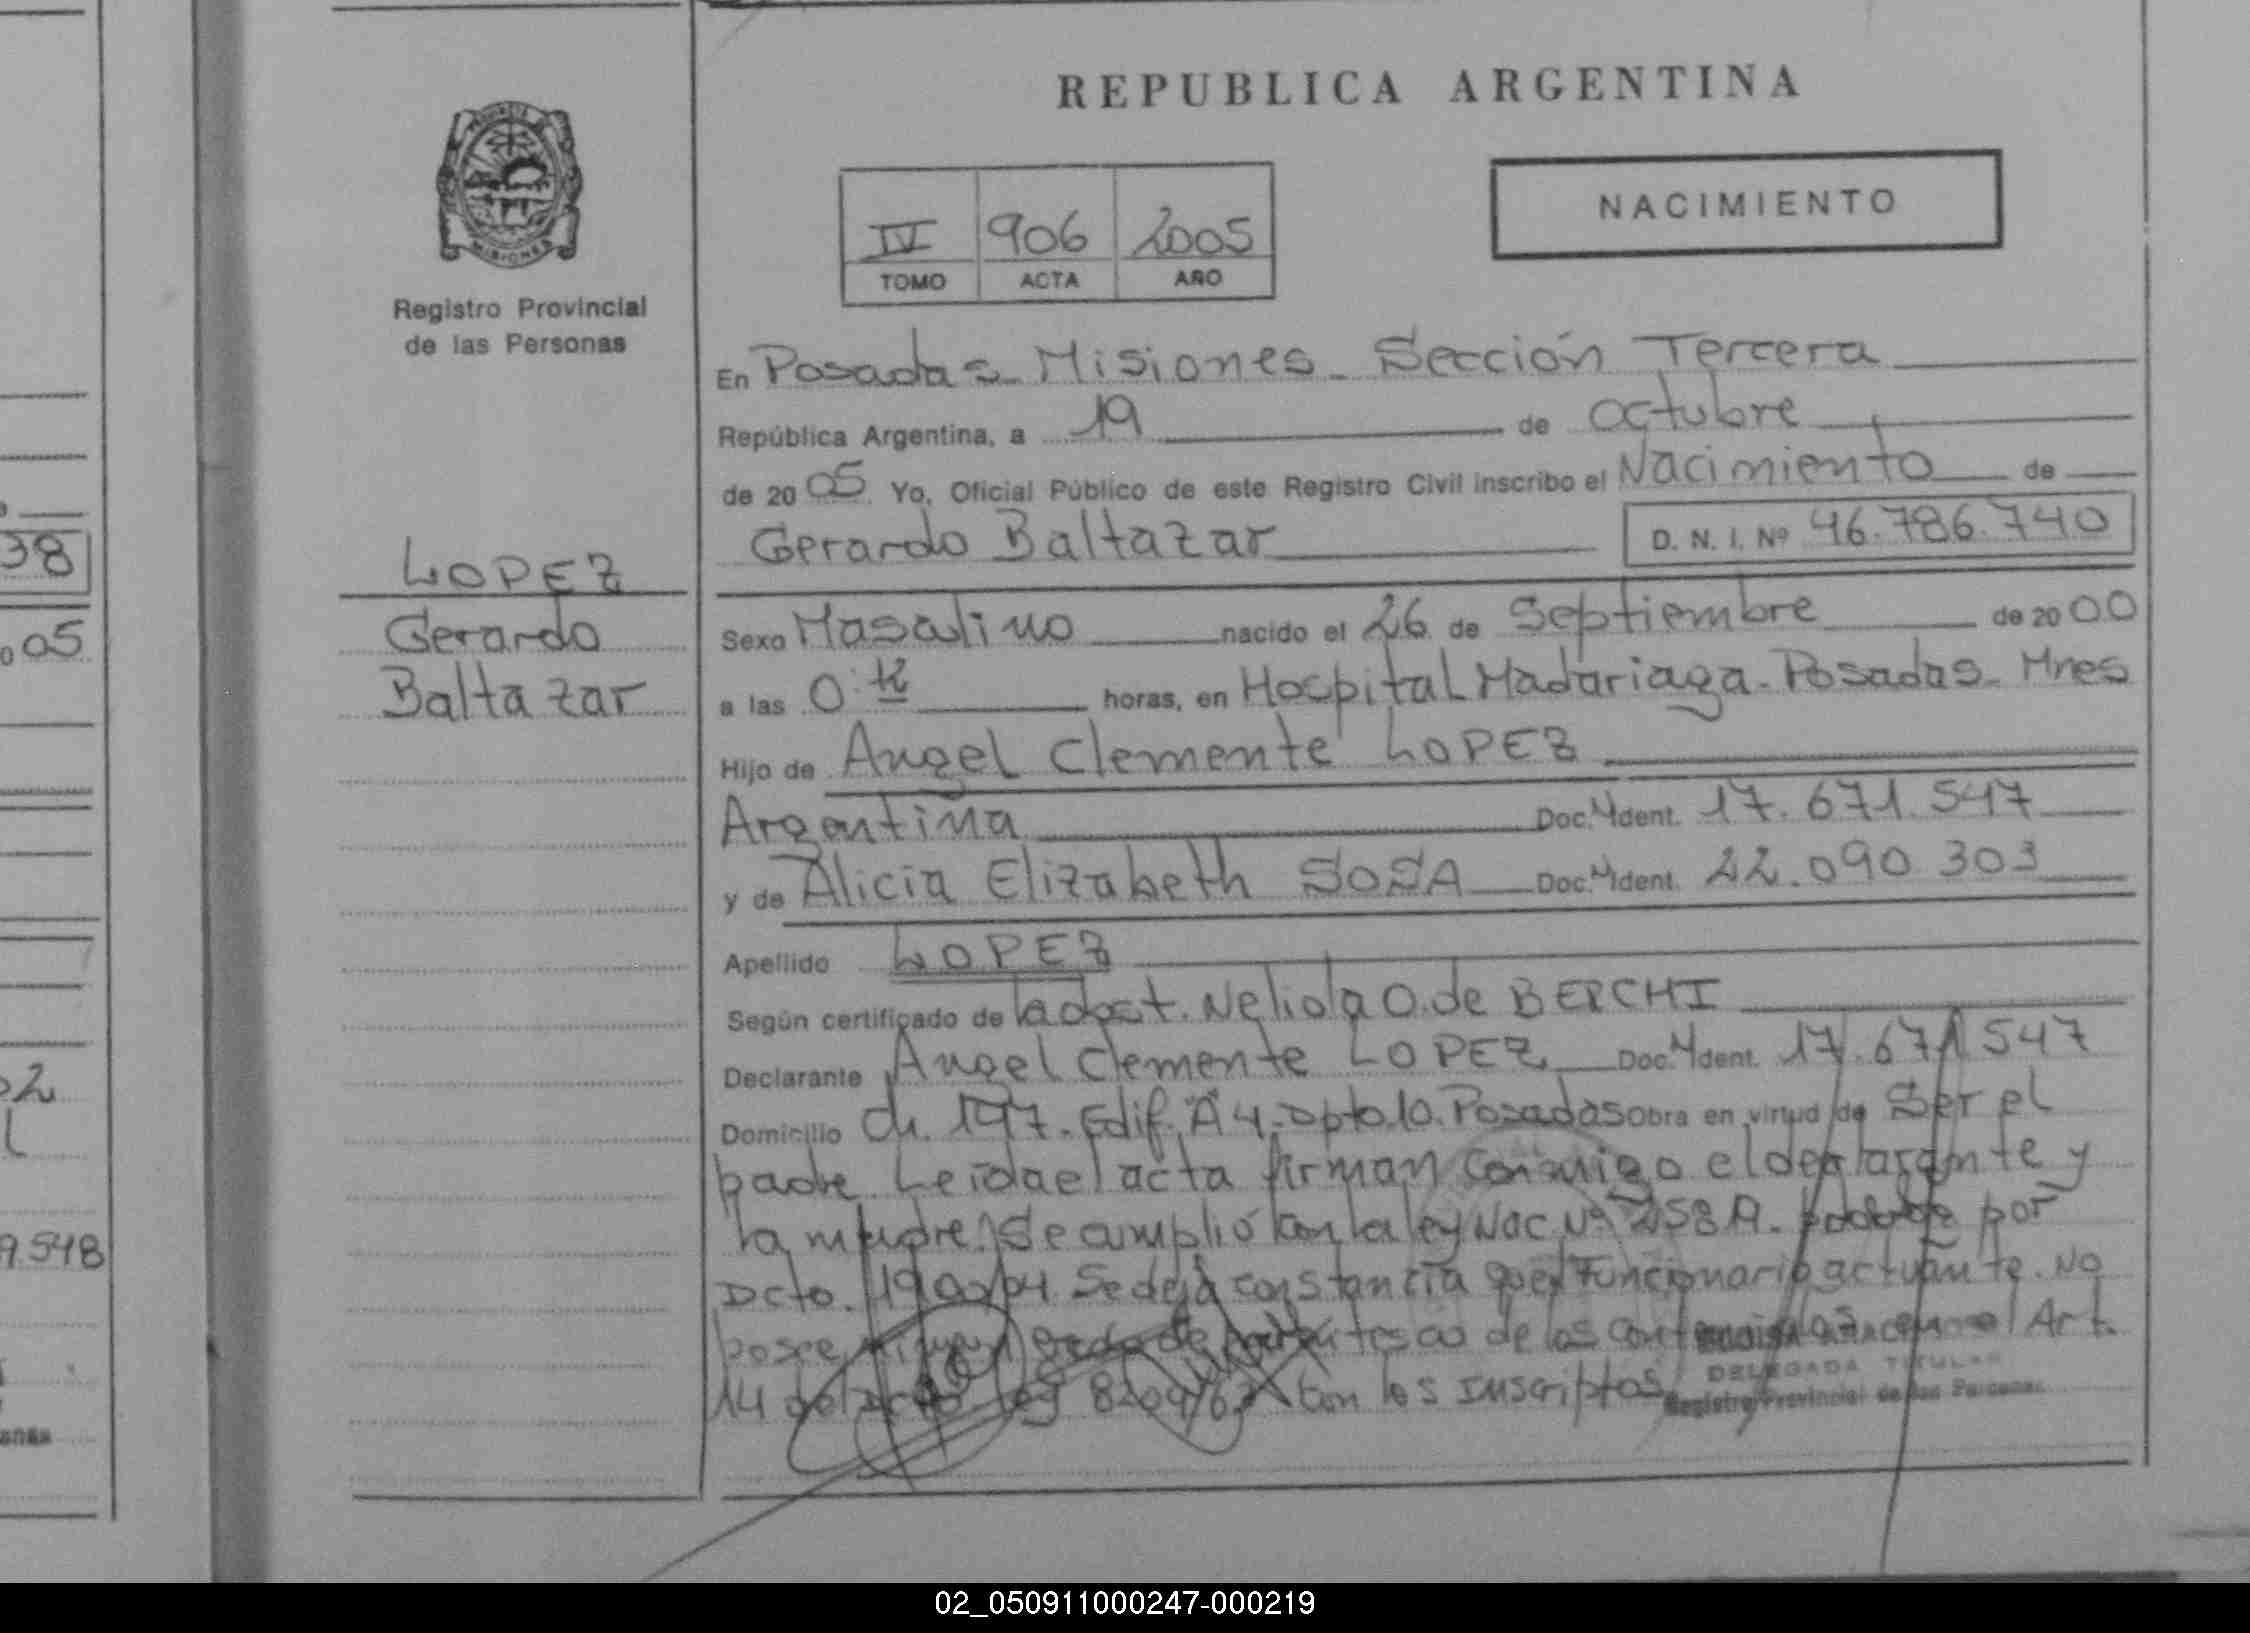 REPUBLICA ARGENTINA
NACIMIENTO
IV 906 2005
TOMO ACTA AÑO
MISIONES
Registro Provincial
de las Personas
LOPEZ
Gerardo
Baltazar
En Posadas - Misiones - Sección Tercera
República Argentina, a 19 de octubre
de 2005 Yo, Oficial Público de este Registro Civil inscribo el Nacimiento de
Gerardo Baltazar D. N. I. Nº 46.786.740
Sexo Masculino nacido el 26 de Septiembre de 2000
a las 0: horas, en Hospital Madariaga - Posadas - Mnes
Hijo de Angel Clemente LOPEZ
Argentina Doc. Ident. 17.671.547
y de Alicia Elizabeth SOSA Doc. Ident. 22.090.303
Apellido LOPEZ
Según certificado de la obst. Nelida O. de BERCHI
Declarante Angel Clemente LOPEZ Doc. Ident. 17.671.547
Domicilio Ch. 197. Edif. "A" 4. Dpto. 10. Posadas Obra en virtud de Ser el
padre Leida el acta firman conmigo el declarante y
la madre. Se amplió con la ley Nac. Nº por
Dcto. Se deja constancia que el Funcionario actuante. No
posee de los en el Art.
14 del ley con los inscriptos
DELEGADA TITULAR
Registro Provincial de las Personas
38
05
9.548
02_050911000247-000219